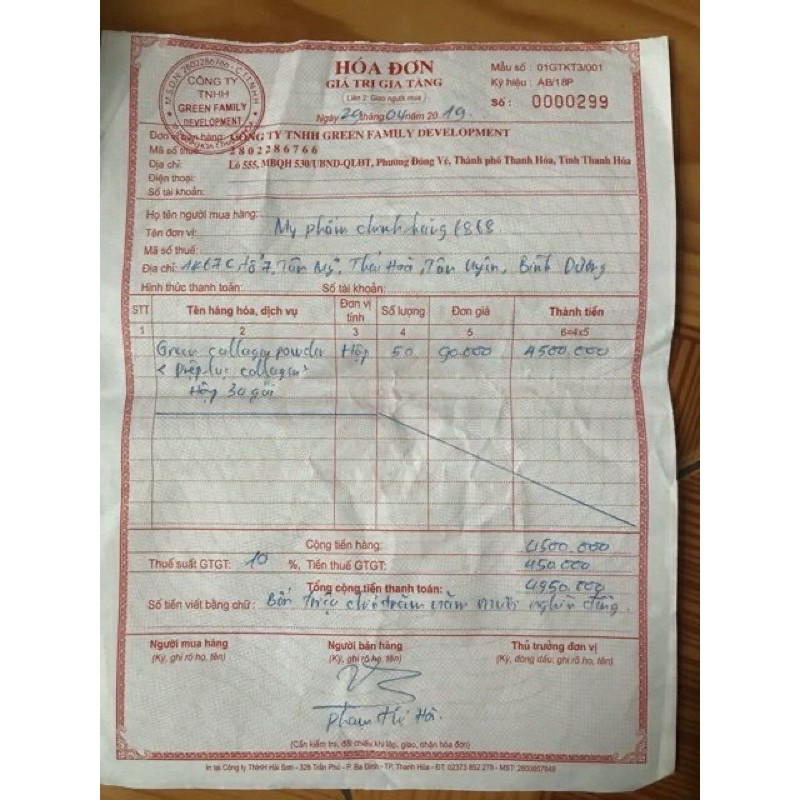 HÓA ĐƠN
GIÁ TRỊ GIA TĂNG
Liên 2: Giao người mua
Ngày 29 tháng 04 năm 2019.
Mẫu số : 01GTKT3/001
Ký hiệu : AB/18P
Số : 0000299
M.S.D.N: 2802286766 - C.T.T.N.H.H
CÔNG TY
TNHH
GREEN FAMILY
DEVELOPMENT
Đơn vị bán hàng: CÔNG TY TNHH GREEN FAMILY DEVELOPMENT
Mã số thuế: 2802286766
Địa chỉ: Lô 555, MBQH 530/UBND-QLĐT, Phường Đông Vệ, Thành phố Thanh Hóa, Tỉnh Thanh Hóa
Điện thoại:
Số tài khoản:
Họ tên người mua hàng:
Tên đơn vị: Mỹ phẩm chính hãng 6868
Mã số thuế:
Địa chỉ: 1K67C, tổ 7, Tân Mỹ, Thái Hoà, Tân Uyên, Bình Dương
Hình thức thanh toán: Số tài khoản:
STT Tên hàng hóa, dịch vụ Đơn vị tính Số lượng Đơn giá Thành tiền
1 2 3 4 5 6=4x5
Green collagen powder Hộp 50 90.000 4500.000
< Diệp lục collagen>
Hộp 30 gói
Cộng tiền hàng: 4500.000
Thuế suất GTGT: 10 %, Tiền thuế GTGT: 450.000
Tổng cộng tiền thanh toán: 4950.000
Số tiền viết bằng chữ : Bốn triệu chín trăm năm mươi nghìn đồng.
Người mua hàng Người bán hàng Thủ trưởng đơn vị
(Ký, ghi rõ họ, tên) (Ký, ghi rõ họ, tên) (Ký, đóng dấu, ghi rõ họ, tên)
Phạm Thị Hà.
(Cần kiểm tra, đối chiếu khi lập, giao, nhận hóa đơn)
In tại Công ty TNHH Hải Sơn - 326 Trần Phú - P. Ba Đình - TP. Thanh Hóa - ĐT: 02373 852 278 - MST: 2800957848